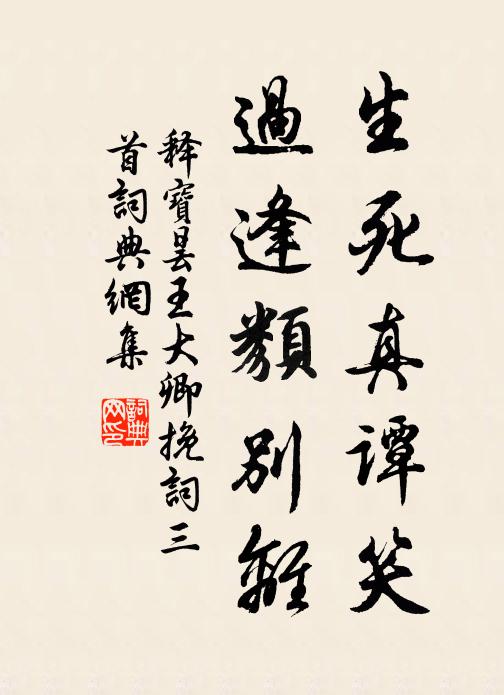 生死真谭笑
過逢類别離
释寶曇王大卿挽詞三
首詞典網集
詞典
网印